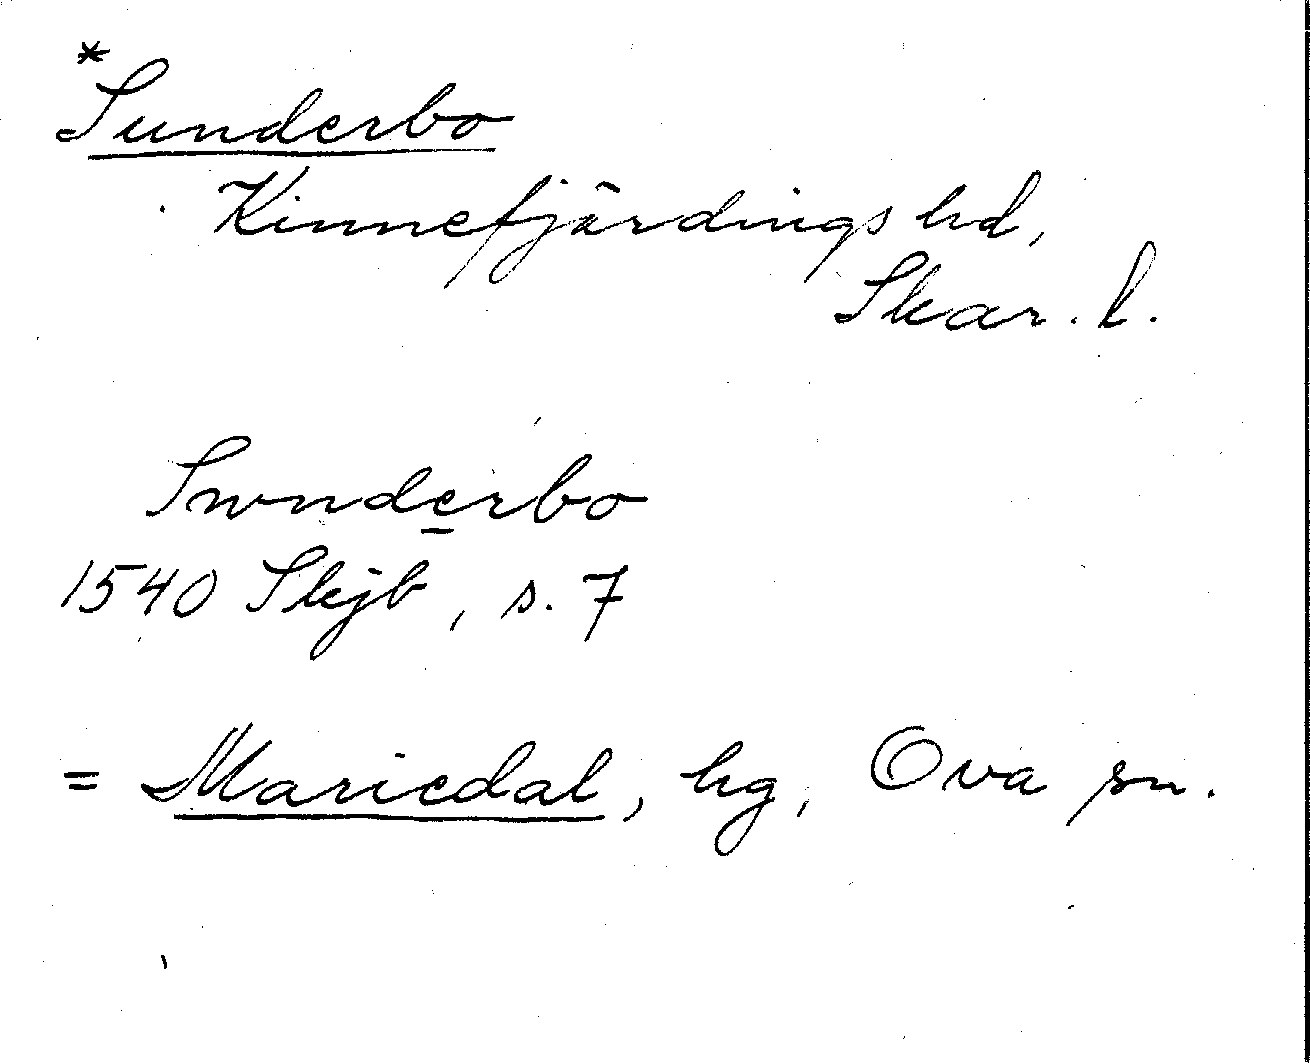 *Sunderbo
Kinnefjärdings hd,
Skar. l.
Swnderbo
1540 Skjb, s. 7
= Mariedal, hg, Ova sn.